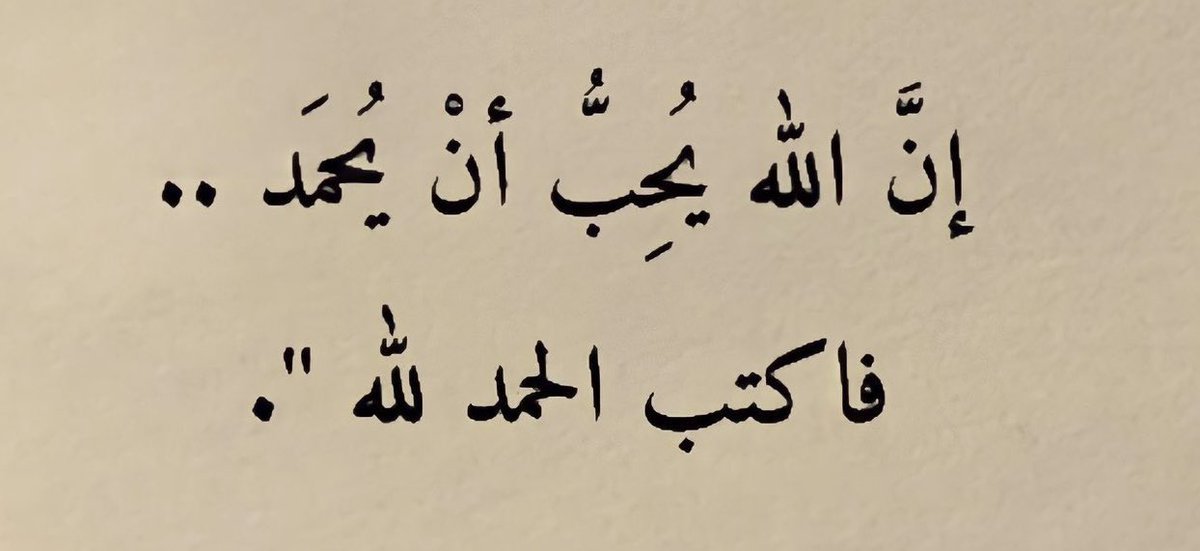 إِنَّ الله يُحِبُّ أنْ يُحمَد ..
فاكتب الحمد لله ".